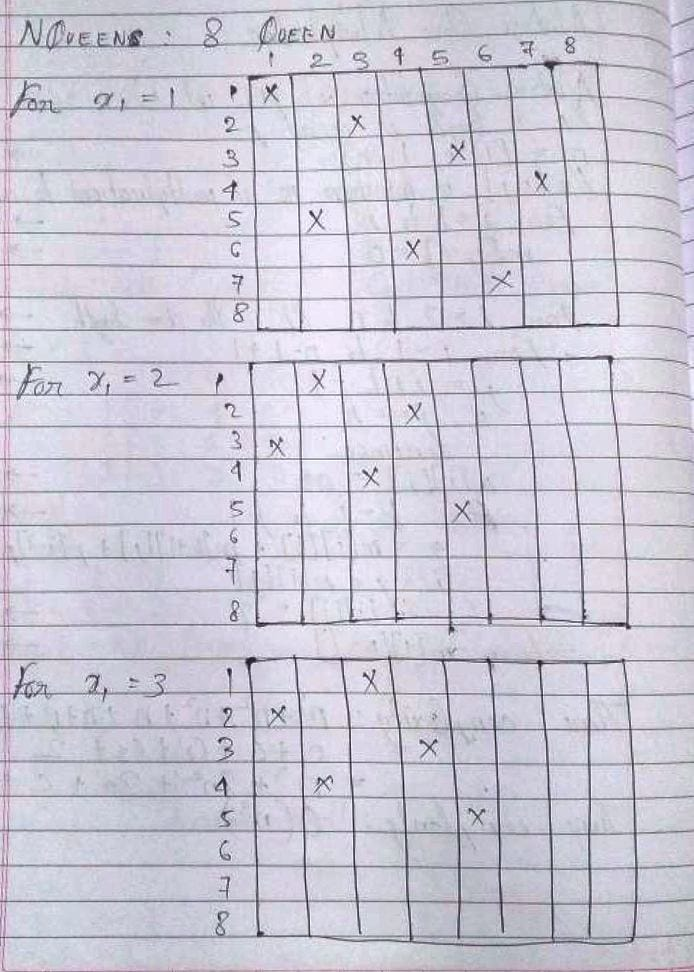 NQUEENS : 8 QUEEN
1 2 3 4 5 6 7 8
For x₁ = 1 1 X
2 X
3 X
4 X
5 X
6 X
7 X
8
For x₁ = 2 1 X
2 X
3 X
4 X
5 X
6
7
8
For x₁ = 3 1 X
2 X
3 X
4 X
5 X
6
7
8